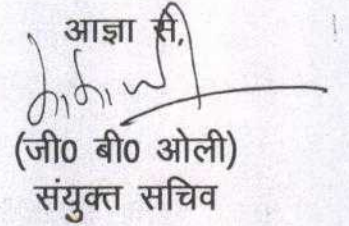 आज्ञा से,
(जी0 बी0 ओली)
संयुक्त सचिव